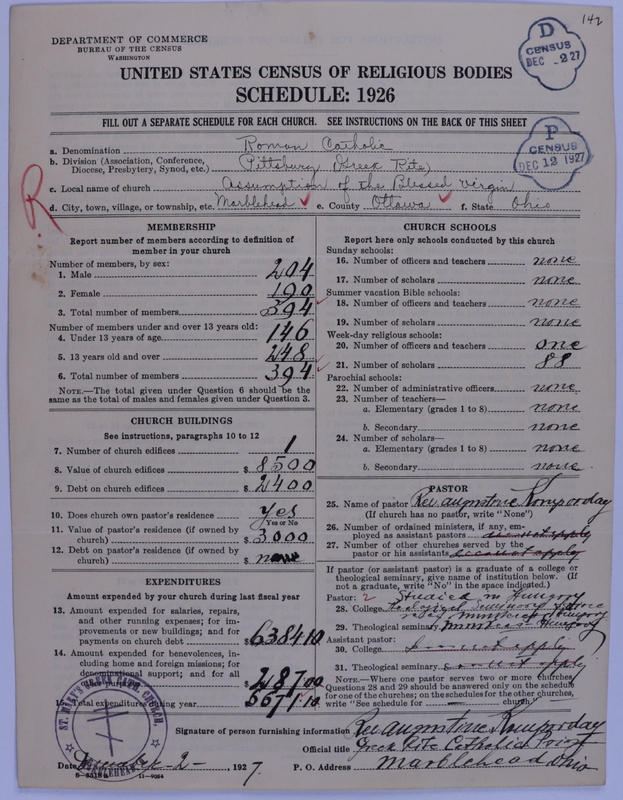 142
DEPARTMENT OF COMMERCE
BUREAU OF THE CENSUS
WASHINGTON
D
CENSUS
DEC -2 27
UNITED STATES CENSUS OF RELIGIOUS BODIES
SCHEDULE: 1926
FILL OUT A SEPARATE SCHEDULE FOR EACH CHURCH. SEE INSTRUCTIONS ON THE BACK OF THIS SHEET
P
CENSUS
DEC 12 1927
a. Denomination Roman Catholic
b. Division (Association, Conference, Diocese, Presbytery, Synod, etc.) Pittsburg (Greek Rite)
c. Local name of church Assumption of the Blessed Virgin
d. City, town, village, or township, etc. Marblehead e. County Ottawa f. State Ohio
R
MEMBERSHIP
Report number of members according to definition of
member in your church
Number of members, by sex:
1. Male 204
2. Female 190
3. Total number of members 394
Number of members under and over 13 years old:
4. Under 13 years of age 146
5. 13 years old and over 248
6. Total number of members 394
NOTE.—The total given under Question 6 should be the
same as the total of males and females given under Question 3.
CHURCH BUILDINGS
See instructions, paragraphs 10 to 12
7. Number of church edifices 1
8. Value of church edifices $ 8500
9. Debt on church edifices $ 2400
10. Does church own pastor's residence yes
Yes or No
11. Value of pastor's residence (if owned by
church) $ 3000
12. Debt on pastor's residence (if owned by
church) $ none
EXPENDITURES
Amount expended by your church during last fiscal year
13. Amount expended for salaries, repairs,
and other running expenses; for im-
provements or new buildings; and for
payments on church debt $ 6384 10
14. Amount expended for benevolences, in-
cluding home and foreign missions; for
denominational support; and for all
287 00
15. Total expenditures during year 6671 10
CHURCH SCHOOLS
Report here only schools conducted by this church
Sunday schools:
16. Number of officers and teachers none
17. Number of scholars none
Summer vacation Bible schools:
18. Number of officers and teachers none
19. Number of scholars none
Week-day religious schools:
20. Number of officers and teachers one
21. Number of scholars 88
Parochial schools:
22. Number of administrative officers none
23. Number of teachers—
a. Elementary (grades 1 to 8) none
b. Secondary none
24. Number of scholars—
a. Elementary (grades 1 to 8) none
b. Secondary none
PASTOR
25. Name of pastor Rev. Augustine Komporday
(If church has no pastor, write "None")
26. Number of ordained ministers, if any, em-
ployed as assistant pastors does not apply
27. Number of other churches served by the
pastor or his assistants does not apply
If pastor (or assistant pastor) is a graduate of a college or
theological seminary, give name of institution below. (If
not a graduate, write "No" in the space indicated.)
Pastor: 2 Studied in Hungary
28. College
29. Theological seminary
Assistant pastor:
30. College
31. Theological seminary
NOTE.—Where one pastor serves two or more churches,
Questions 28 and 29 should be answered only on the schedule
for one of the churches; on the schedules for the other churches,
write "See schedule for church"
ST. MARY'S GREEK CATH. CHURCH
MARBLEHEAD, O.
Signature of person furnishing information Rev. Augustine Komporday
Official title Greek Rite Catholic Priest
Date 2- 1927. P. O. Address Marblehead Ohio
11-9064